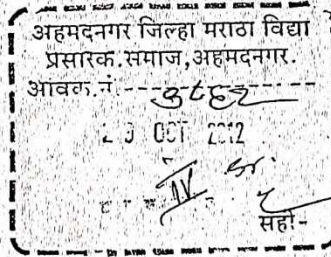 अहमदनगर जिल्हा मराठा विद्या
प्रसारक.समाज,अहमदनगर.
आवक.नं.
OCT 2012
IV
सही-